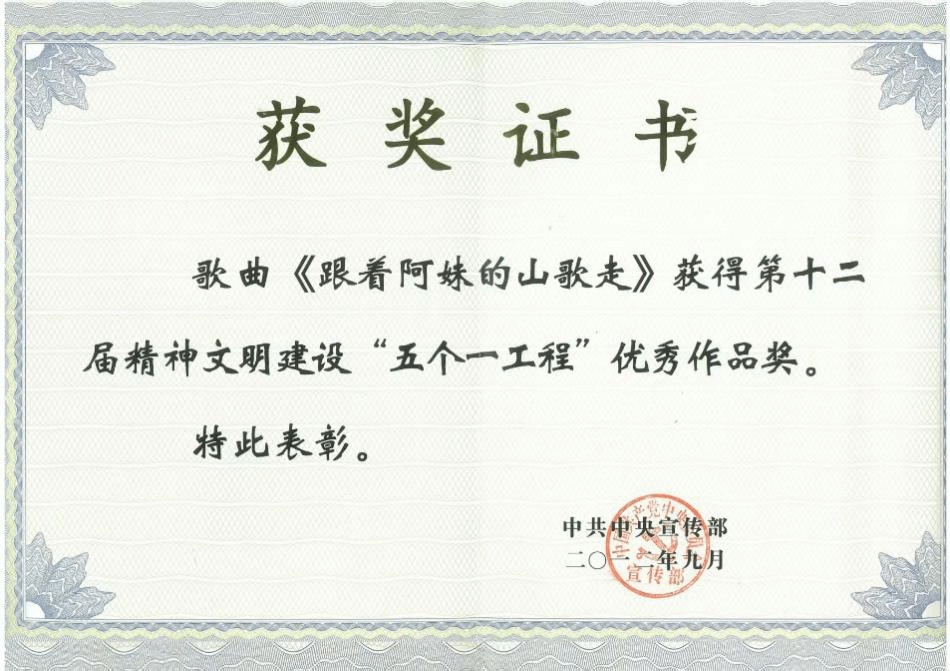 获奖证书
歌曲《跟着阿妹的山歌走》获得第十二
届精神文明建设“五个一工程”优秀作品奖。
特此表彰。
中共中央宣传部
二〇一二年九月
中国共产党中央委员会
宣传部